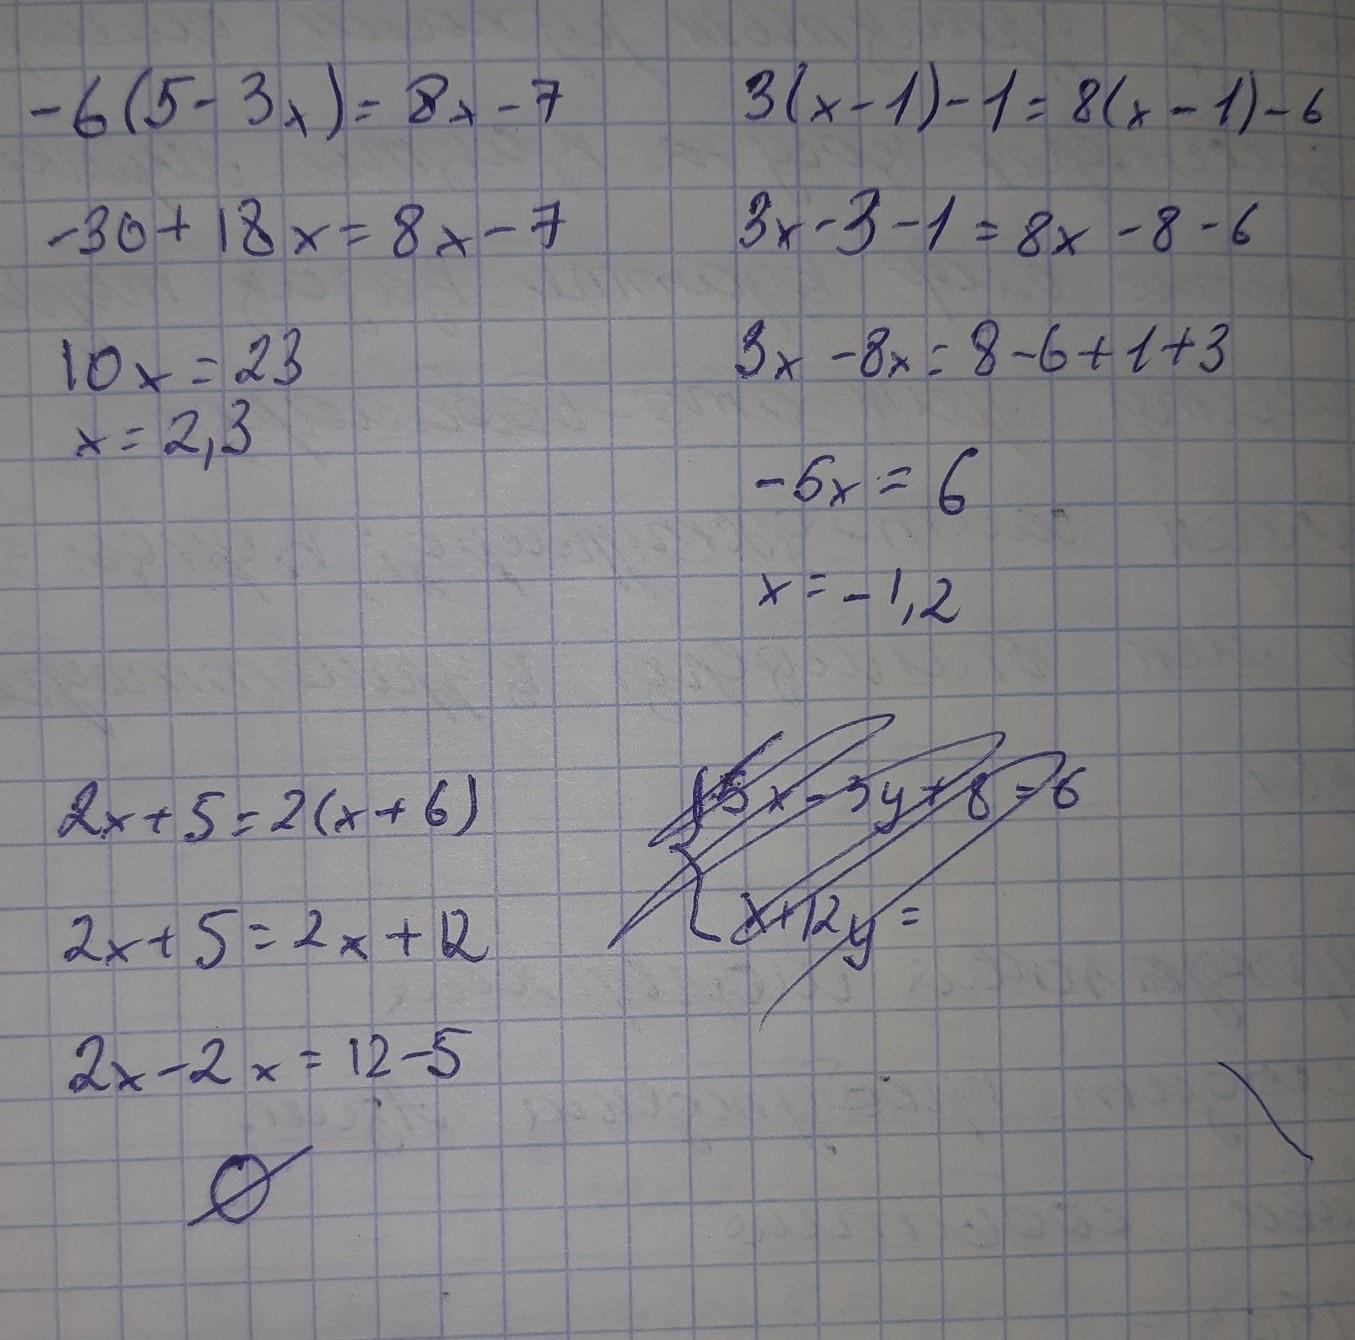 -6(5-3x)=8x-7
-30+18x=8x-7
10x=23
x=2,3
3(x-1)-1=8(x-1)-6
3x-3-1=8x-8-6
3x-8x=8-6+1+3
-5x=6
x=-1,2
2x+5=2(x+6)
2x+5=2x+12
2x-2x=12-5
∅
{5x-3y+8=6
x+12y=